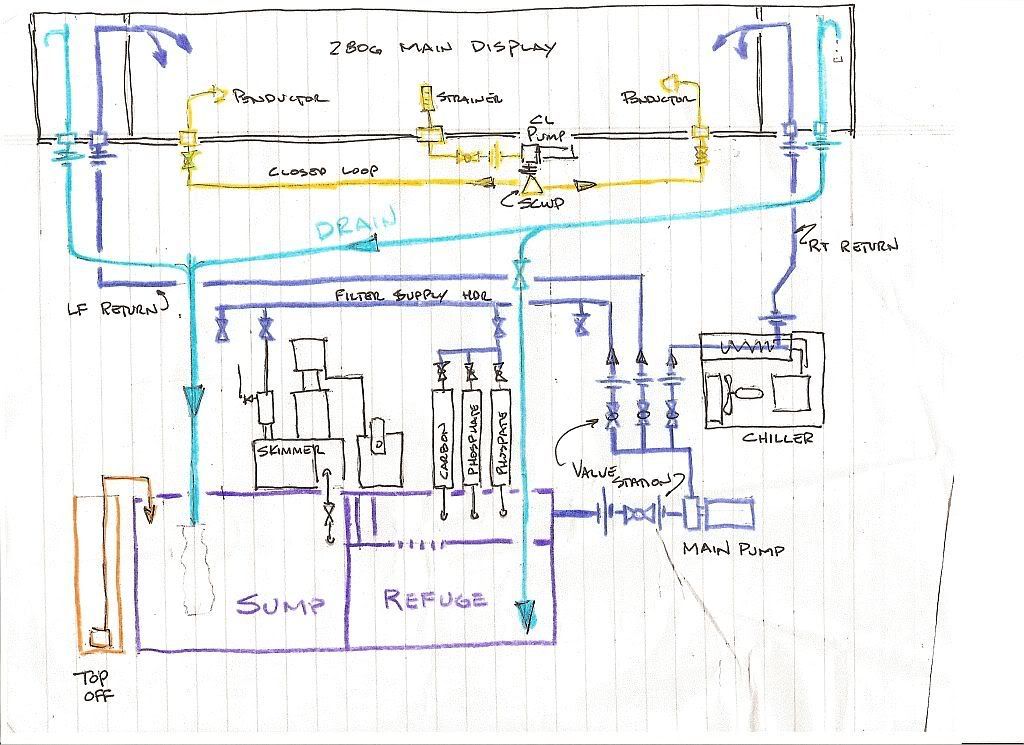 280G MAIN DISPLAY
PENDUCTOR
STRAINER
PENDUCTOR
CL
PUMP
CLOSED LOOP
SCWD
DRAIN
RT RETURN
LF RETURN
FILTER SUPPLY HDR
SKIMMER
CARBON
PHOSPHATE
PHOSPATE
CHILLER
VALVE
STATION
MAIN PUMP
SUMP
REFUGE
TOP
OFF